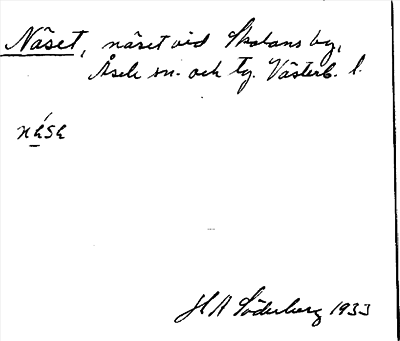 Näset, näset vid Skalans by,
Åsele sn. och tg. Västerb. l.
H A Söderberg 1933